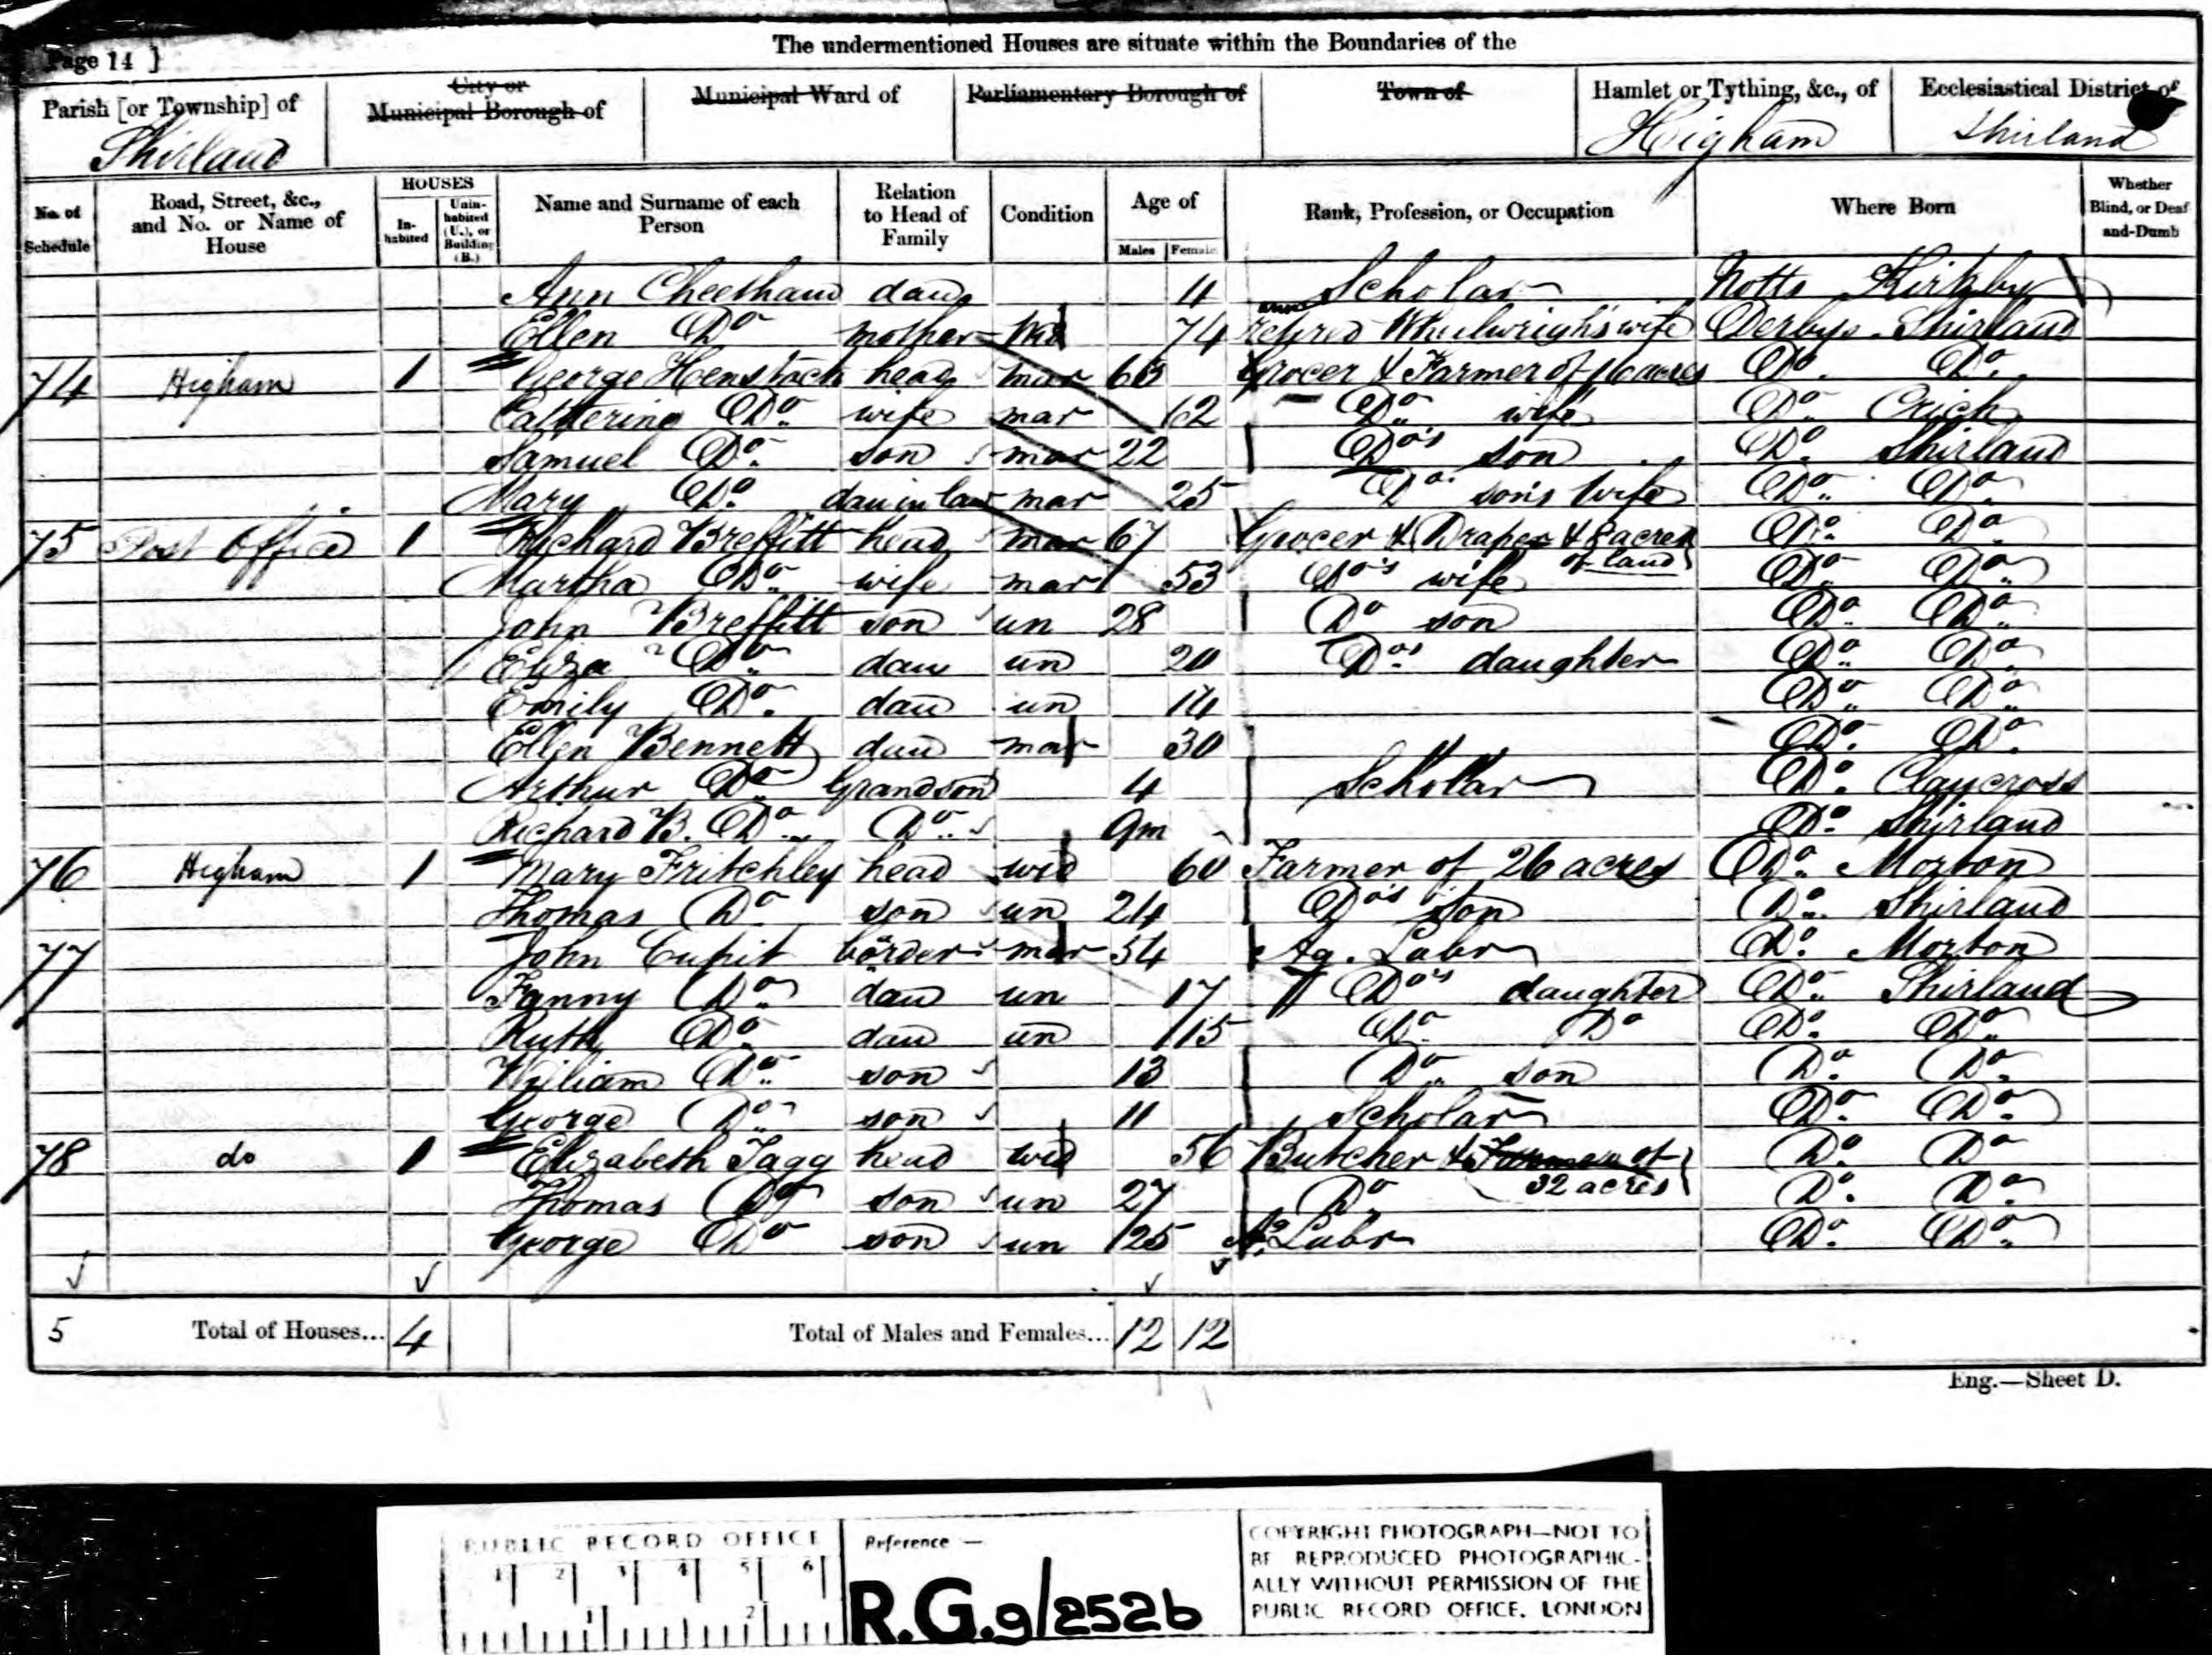 Page 14 }
The undermentioned Houses are situate within the Boundaries of the
Parish [or Township] of
City or Municipal Borough of
Municipal Ward of
Parliamentary Borough of
Town of
Hamlet or Tything, &c., of
Ecclesiastical District of
Shirland
Higham
Shirland
No. of Schedule
Road, Street, &c., and No. or Name of House
HOUSES
In-habited
Unin-habited (U.), or Building (B.)
Name and Surname of each Person
Relation to Head of Family
Condition
Age of
Males
Females
Rank, Profession, or Occupation
Where Born
Whether Blind, or Deaf-and-Dumb
Ann Cheetham dau 4 Scholar Notts Kirkby
Ellen Do mother Wid 74 retired Wheelwright's wife Derbys. Shirland
74 Higham 1 George Henstock head mar Grocer & Farmer of 16 acres Do. Do.
Catherine Do. wife mar 62 Do. wife Do. Crich
Samuel Do. son mar 22 Do's son Do. Shirland
Mary Do. dau in law mar 25 Do. sons Wife Do. Do.
75 Post Office 1 Richard Breffitt head mar 67 Grocer & Draper & 8 acres of land Do. Do.
Martha Do. wife mar 53 Do's wife Do. Do.
John Breffitt son un 28 Do son Do. Do.
Eliza Do. dau un 20 Do's daughter Do. Do.
Emily Do. dau un 14 Do. Do.
Ellen Bennett dau mar 30 Do. Do.
Arthur Do. Grandson 4 Scholar Do. Claycross
Richard B. Do. Do. 9m Do. Shirland
76 Higham 1 Mary Fritchley head wid 60 Farmer of 26 acres Do. Morton
Thomas Do. son un 24 Do's son Do. Shirland
77 John Cupit border mar 54 Ag. Labr Do. Morton
Fanny Do. dau un 17 Do's daughter Do. Shirland
Ruth Do. dau un 15 Do. Do Do. Do.
William Do. son 13 Do. son Do. Do.
George Do. son 11 Scholar Do. Do.
78 do 1 Elizabeth Tagg head wid 56 Butcher & Farmer of 32 acres Do. Do
Thomas Do son un 27 Do. Do. Do.
George Do son un 25 Ag. Labr Do. Do.
5 Total of Houses... 4 Total of Males and Females... 12 12
Eng.—Sheet D.
PUBLIC RECORD OFFICE
1 2 3 4 5 6
1 2
Reference —
R.G.9/2526
COPYRIGHT PHOTOGRAPH—NOT TO
BE REPRODUCED PHOTOGRAPHIC-
ALLY WITHOUT PERMISSION OF THE
PUBLIC RECORD OFFICE, LONDON